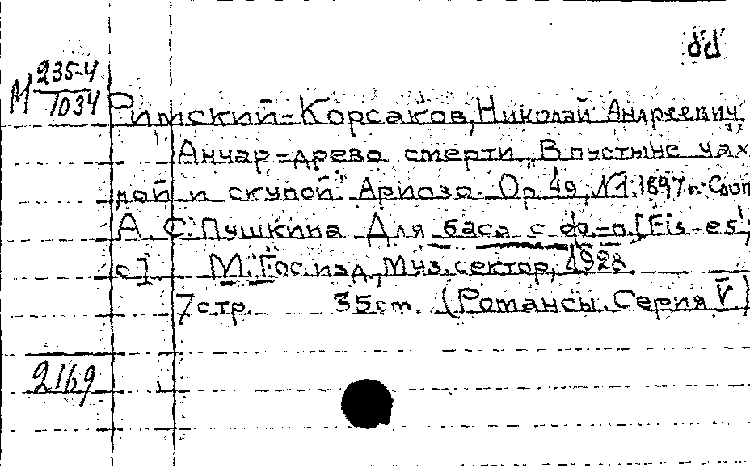 М 235-4
1034
Римский-Корсаков, Николай Андреевич
Анчар-древо смерти „В пустыне чах
лой и скупой" Ариозо. Op. 49, N1. 1897 г. Слоп
А. С. Пушкина Для баса с ф.-п. [Fis-es';
c] М. Гос. изд., Муз. сектор, 1928.
7 стр. 35 см. (Романсы. Серия V)
2169